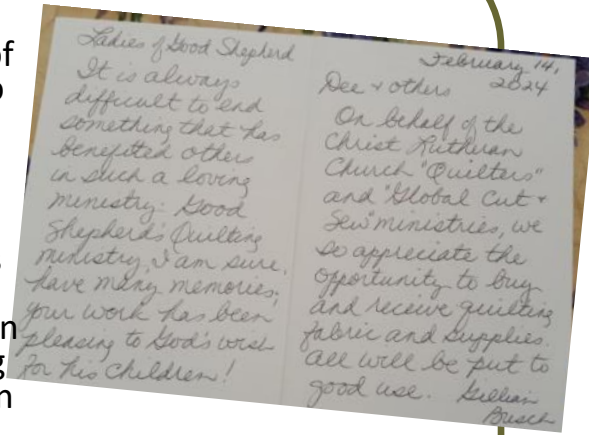 of
n
g
n
Ladies of Good Shepherd
It is always
difficult to end
something that has
benefited others
in such a loving
ministry. Good
Shepherd's Quilting
ministry, I am sure,
have many memories.
Your work has been
pleasing to God's wish
for his children!
February 14,
2024
Dee & others
On behalf of the
Christ Lutheran
Church "Quilters"
and "Global Cut &
Sew" ministries, we
so appreciate the
opportunity to buy
and receive quilting
fabric and supplies.
All will be put to
good use. Gillian
Busch